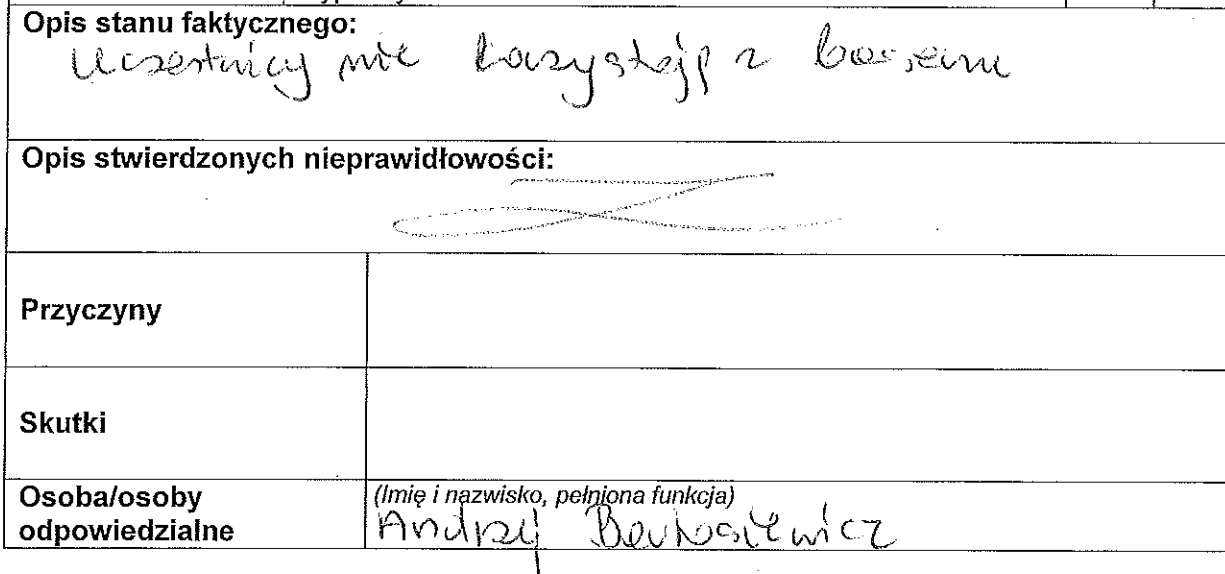 Opis stanu faktycznego:
Uczestnicy nie korzystają z basenu
Opis stwierdzonych nieprawidłowości:
Przyczyny
Skutki
Osoba/osoby
odpowiedzialne
(Imię i nazwisko, pełniona funkcja)
Andrzej